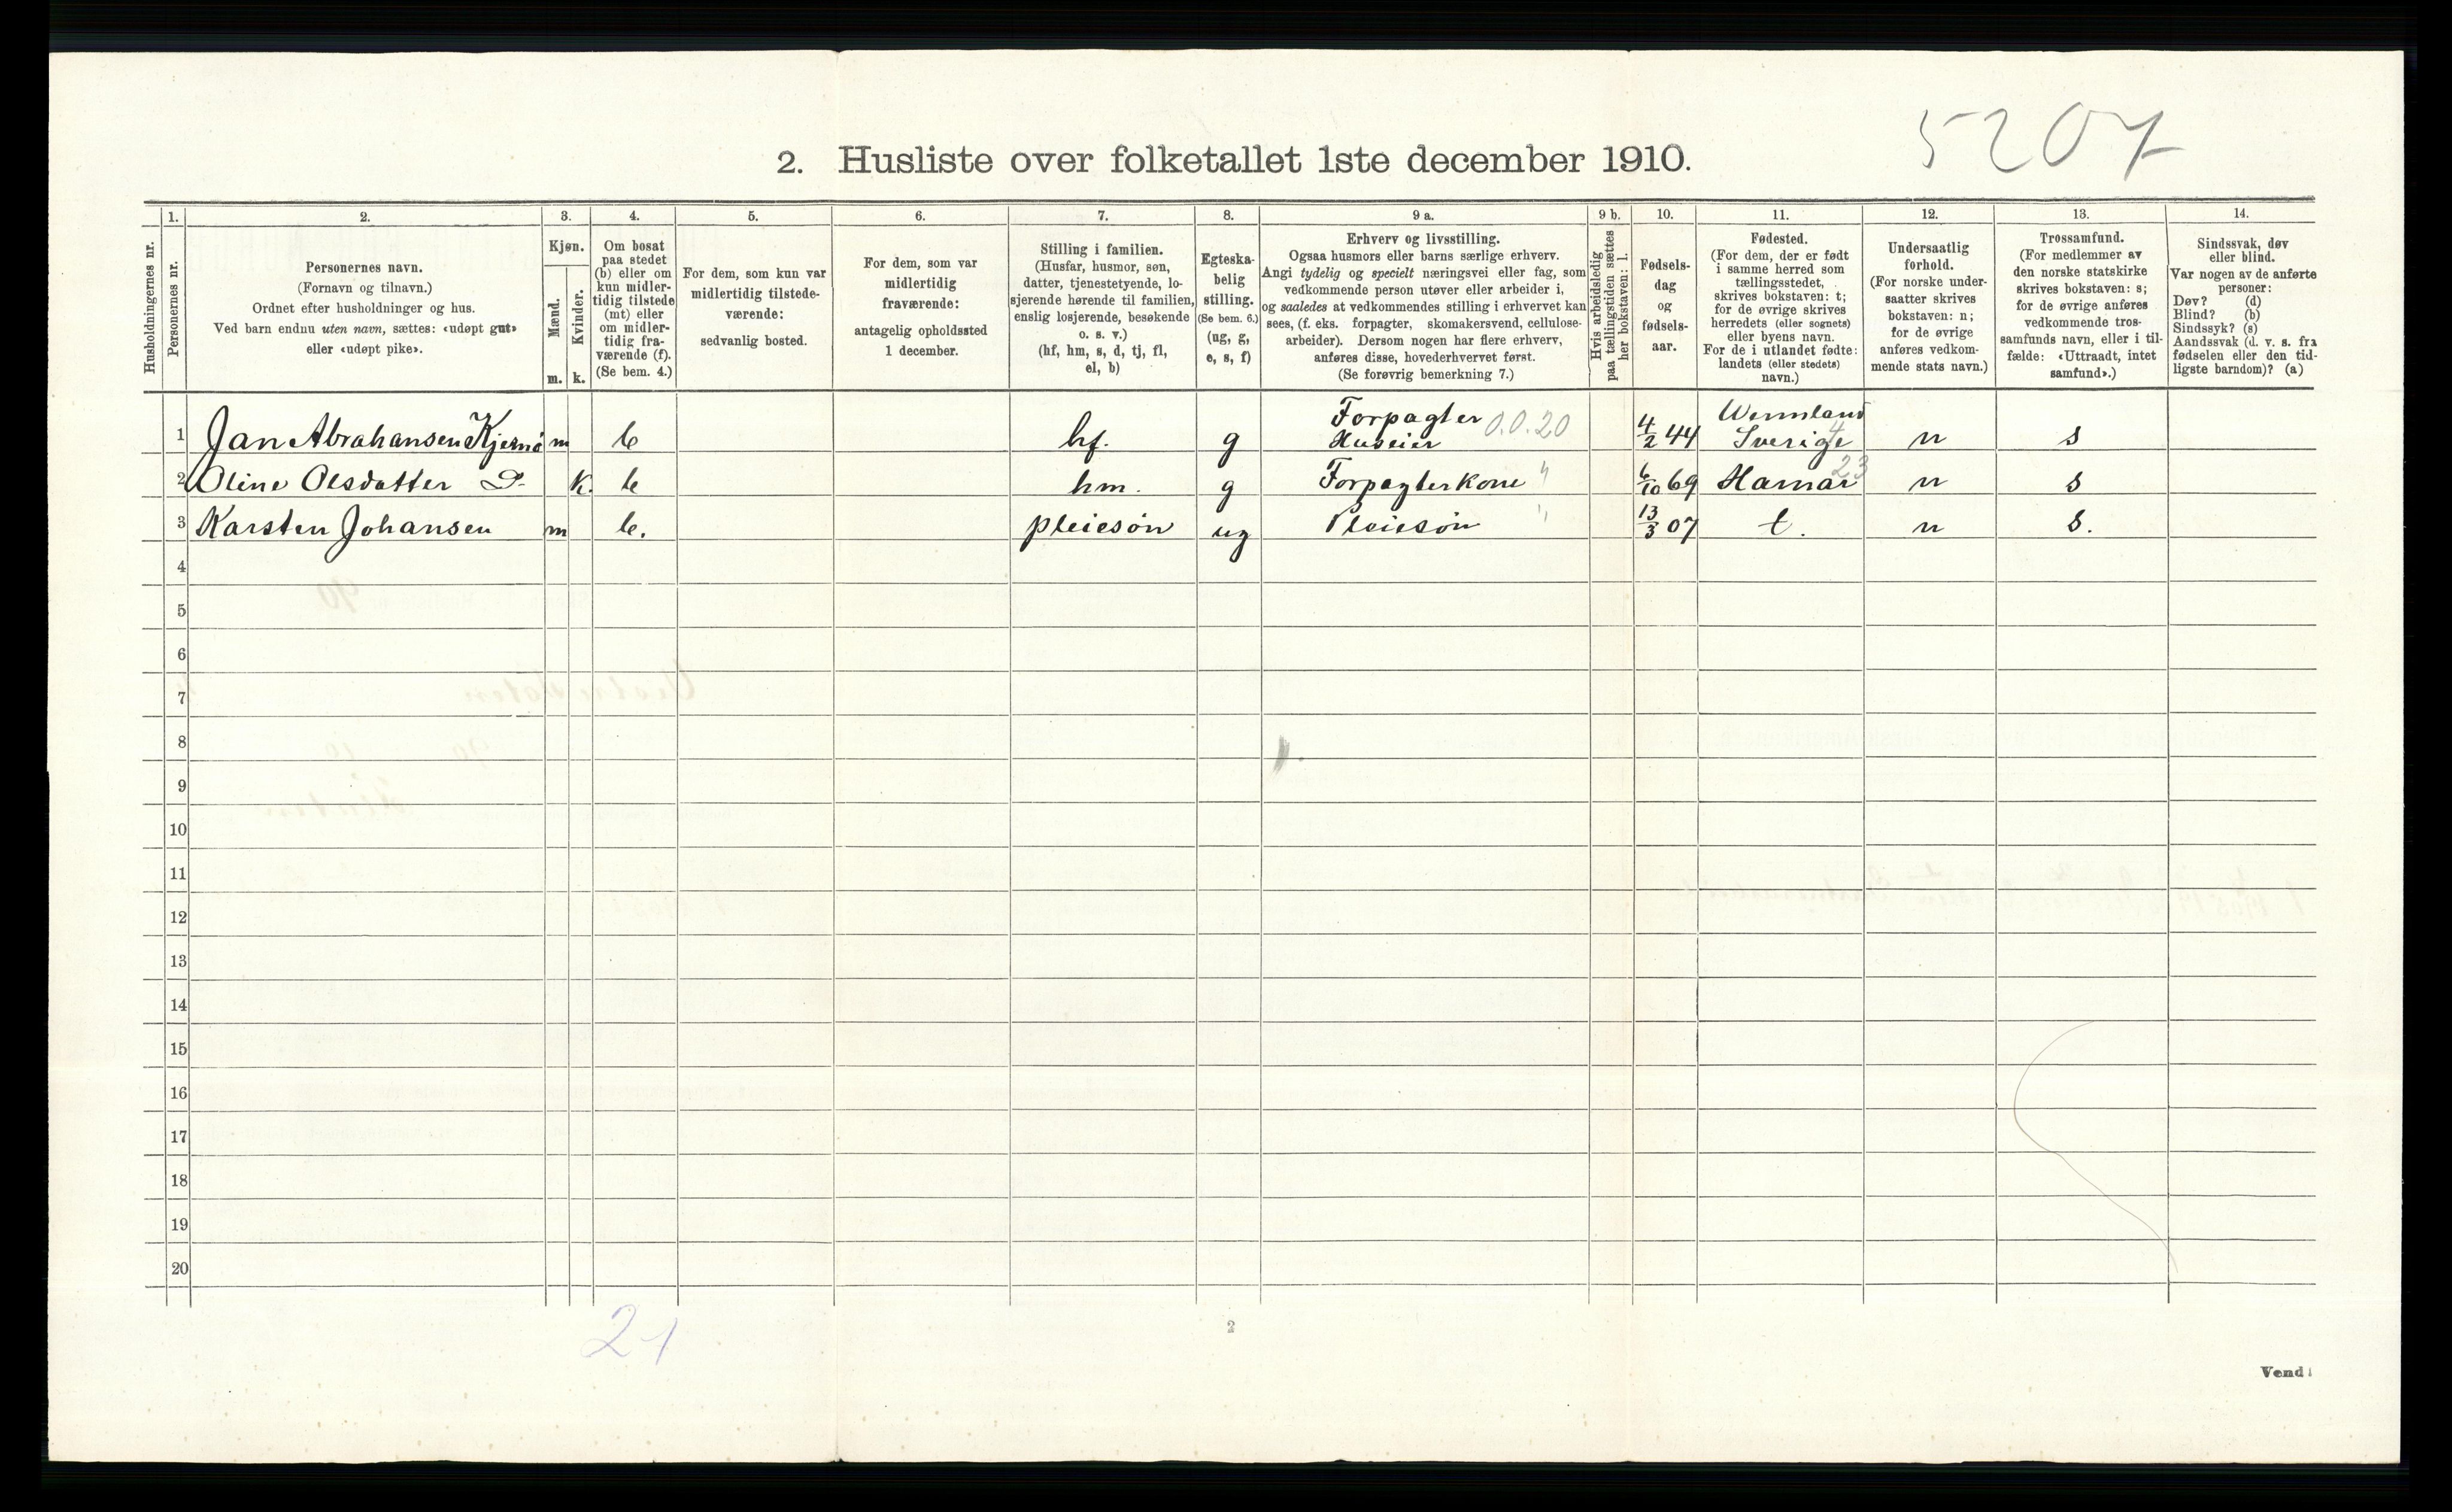 5207
2. Husliste over folketallet 1ste december 1910.
Husholdningernes nr.
1.
Personernes nr.
2.
Personernes navn.
(Fornavn og tilnavn.)
Ordnet efter husholdninger og hus.
Ved barn endnu uten navn, sættes: «udøpt gut»
eller «udøpt pike».
3.
Kjøn.
Mænd.
Kvinder.
m. k.
4.
Om bosat
paa stedet
(b) eller om
kun midler-
tidig tilstede
(mt) eller
om midler-
tidig fra-
værende (f).
(Se bem. 4.)
5.
For dem, som kun var
midlertidig tilstede-
værende:
sedvanlig bosted.
6.
For dem, som var
midlertidig
fraværende:
antagelig opholdssted
1 december.
7.
Stilling i familien.
(Husfar, husmor, søn,
datter, tjenestetyende, lo-
sjerende hørende til familien,
enslig losjerende, besøkende
o. s. v.)
(hf, hm, s, d, tj, fl,
el, b)
8.
Egteska-
belig
stilling.
(Se bem. 6.)
(ug, g,
e, s, f)
9 a.
Erhverv og livsstilling.
Ogsaa husmors eller barns særlige erhverv.
Angi tydelig og specielt næringsvei eller fag, som
vedkommende person utøver eller arbeider i,
og saaledes at vedkommendes stilling i erhvervet kan
sees, (f. eks. forpagter, skomakersvend, cellulose-
arbeider). Dersom nogen har flere erhverv,
anføres disse, hovederhvervet først.
(Se forøvrig bemerkning 7.)
9 b.
Hvis arbeidsledig
paa tællingstiden sættes
her bokstaven: l.
10.
Fødsels-
dag
og
fødsels-
aar.
11.
Fødested.
(For dem, der er født
i samme herred som
tællingsstedet,
skrives bokstaven: t;
for de øvrige skrives
herredets (eller sognets)
eller byens navn.
For de i utlandet fødte:
landets (eller stedets)
navn.)
12.
Undersaatlig
forhold.
(For norske under-
saatter skrives
bokstaven: n;
for de øvrige
anføres vedkom-
mende stats navn.)
13.
Trossamfund.
(For medlemmer av
den norske statskirke
skrives bokstaven: s;
for de øvrige anføres
vedkommende tros-
samfunds navn, eller i til-
fælde: «Uttraadt, intet
samfund».)
14.
Sindssvak, døv
eller blind.
Var nogen av de anførte
personer:
Døv? (d)
Blind? (b)
Sindssyk? (s)
Aandssvak (d. v. s. fra
fødselen eller den tid-
ligste barndom)? (a)
1 Jan Abrahansen Kjernå m b hf. g Forpagter Huseier 0.0.20 4/2 44 Wermland Sverige 4 n s
2 Oline Olsdatter D. k. b hm. g Forpagterkone " 6/10 69 Hamar 23 n s
3 Karsten Johansen m b. pleiesøn ug Pleiesøn " 13/3 07 t. n s.
4
5
6
7
8
9
10
11
12
13
14
15
16
17
18
19
20
21
2
Vend!